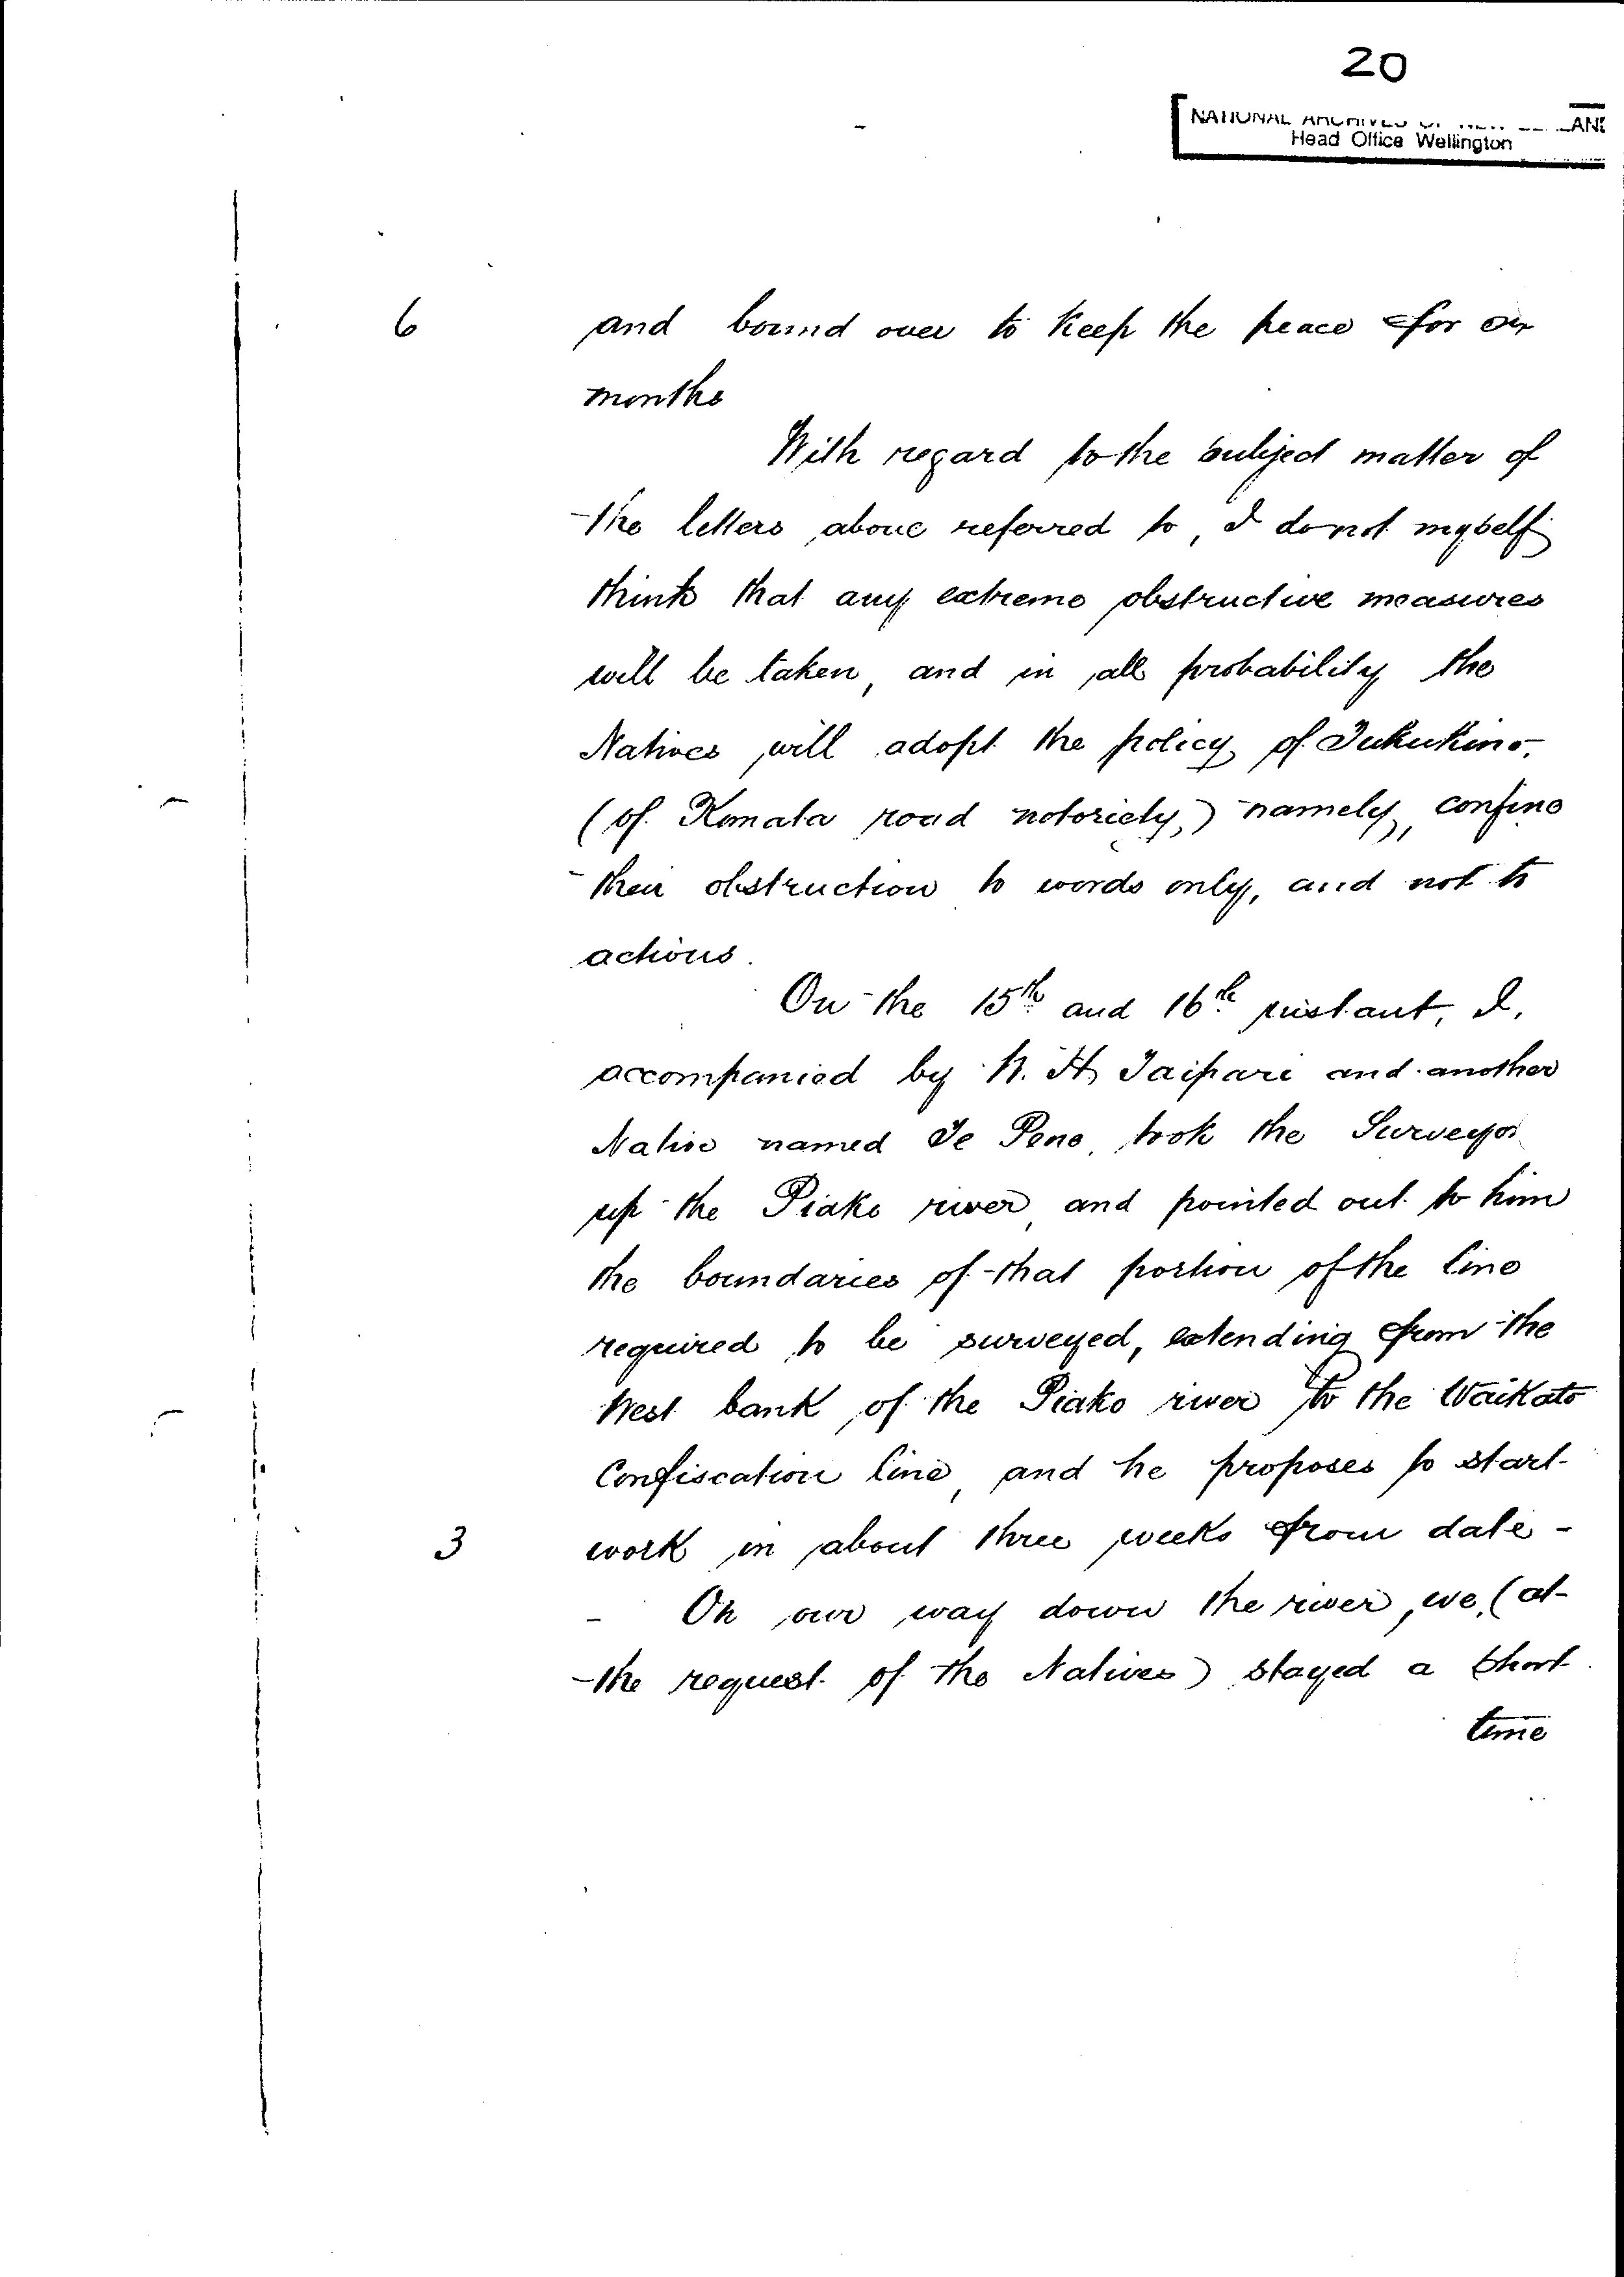 20
NATIONAL ARCHIVES OF NEW
Head Office Wellington
6 and bound over to keep the peace for six
months
With regard to the subject matter of
the letters above referred to, I do not myself
think that any extreme obstructive measures
will be taken, and in all probability the
Natives will adopt the policy of Tukukino,
(of Komata road notoriety,) namely, confine
their obstruction to words only, and not to
actions.
On the 15th and 16th instant, I,
accompanied by W. H. Taipari and another
Native named Te Pene, took the Surveyor
up the Piako river, and pointed out to him
the boundaries of that portion of the line
required to be surveyed, extending from the
West bank of the Piako river to the Waikato
Confiscation line, and he proposes to start
3 work in about three weeks from date -
- On our way down the river, we, (at
the request of the Natives) stayed a short
time